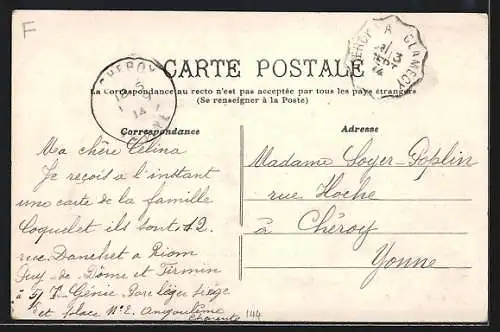 F
CHEROY
14
CHEROY A CLAMECY
14
CARTE POSTALE
La Correspondance au recto n'est pas acceptée par tous les pays étrangers
(Se renseigner à la Poste)
Correspondance
Ma chère Célina
Je reçois a l'instant
une carte de la famille
Coquelet ils sont 12
rue Danchet a Riom
Puy-de Dôme et Firmin
à 51 Génie Parc léger Siège
et place N°2. Angoulême
Charente 144
Adresse
Madame Soyer-Poplin
rue Hoche
à Chéroy
Yonne